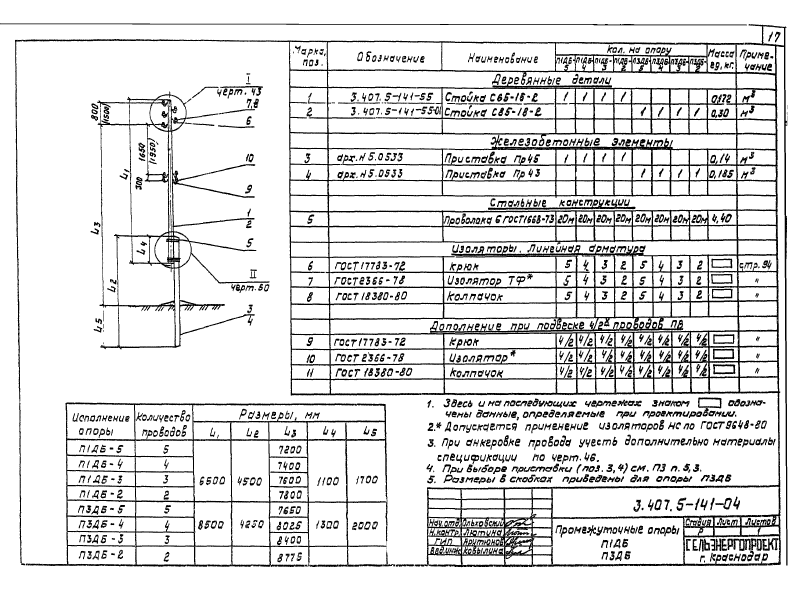 17
I
черт. 43
7,8
6
10
9
1
2
5
II
черт. 50
3
4
800
(1500)
1650
(1950)
300
L1
L3
L2
L4
L5
Марка, поз. Обозначение Наименование Кол. на опору Масса ед, кг. Примечание
П1ДБ-5 П1ДБ-4 П1ДБ-3 П1ДБ-2 П3ДБ-5 П3ДБ-4 П3ДБ-3 П3ДБ-2
Деревянные детали
1 3.407.5-141-55 Стойка С65-16-2 1 1 1 1 0,172 м³
2 3.407.5-141-55-01 Стойка С85-18-2 1 1 1 1 0,30 м³
Железобетонные элементы
3 арх. н 5.0533 Приставка Пр45 1 1 1 1 0,14 м³
4 арх. н 5.0533 Приставка Пр43 1 1 1 1 0,185 м³
Стальные конструкции
5 Проволока 6 ГОСТ 1668-73 20м 20м 20м 20м 20м 20м 20м 20м 4,40
Изоляторы. Линейная арматура
6 ГОСТ 17783-72 Крюк 5 4 3 2 5 4 3 2 стр. 94
7 ГОСТ 2366-78 Изолятор ТФ* 5 4 3 2 5 4 3 2 "
8 ГОСТ 18380-80 Колпачок 5 4 3 2 5 4 3 2 "
Дополнение при подвеске 4/2х проводов ПВ
9 ГОСТ 17783-72 Крюк 4/2 4/2 4/2 4/2 4/2 4/2 4/2 4/2 "
10 ГОСТ 2366-78 Изолятор* 4/2 4/2 4/2 4/2 4/2 4/2 4/2 4/2 "
11 ГОСТ 18380-80 Колпачок 4/2 4/2 4/2 4/2 4/2 4/2 4/2 4/2 "
Исполнение опоры Количество проводов Размеры, мм
L1 L2 L3 L4 L5
П1ДБ-5 5 7200
П1ДБ-4 4 7400
П1ДБ-3 3 6500 4500 7600 1100 1700
П1ДБ-2 2 7800
П3ДБ-5 5 7650
П3ДБ-4 4 8500 4250 8025 1300 2000
П3ДБ-3 3 8400
П3ДБ-2 2 8775
1. Здесь и на последующих чертежах знаком обозна-
чены данные, определяемые при проектировании.
2.* Допускается применение изоляторов НС по ГОСТ 8648-80
3. При анкеровке провода учесть дополнительно материалы
спецификации по черт. 46.
4. При выборе приставки (поз. 3,4) см. ПЗ п. 5,3.
5. Размеры в скобках приведены для опоры П3ДБ
3.407.5-141-04
Нач. отд. Ольховский
Н.контр. Лютина
ГИП Арутюнов
Вед.инж. Ковылина
Промежуточные опоры
П1ДБ
П3ДБ
Стадия Лист Листов
Р 1
СЕЛЬЭНЕРГОПРОЕКТ
г. Краснодар